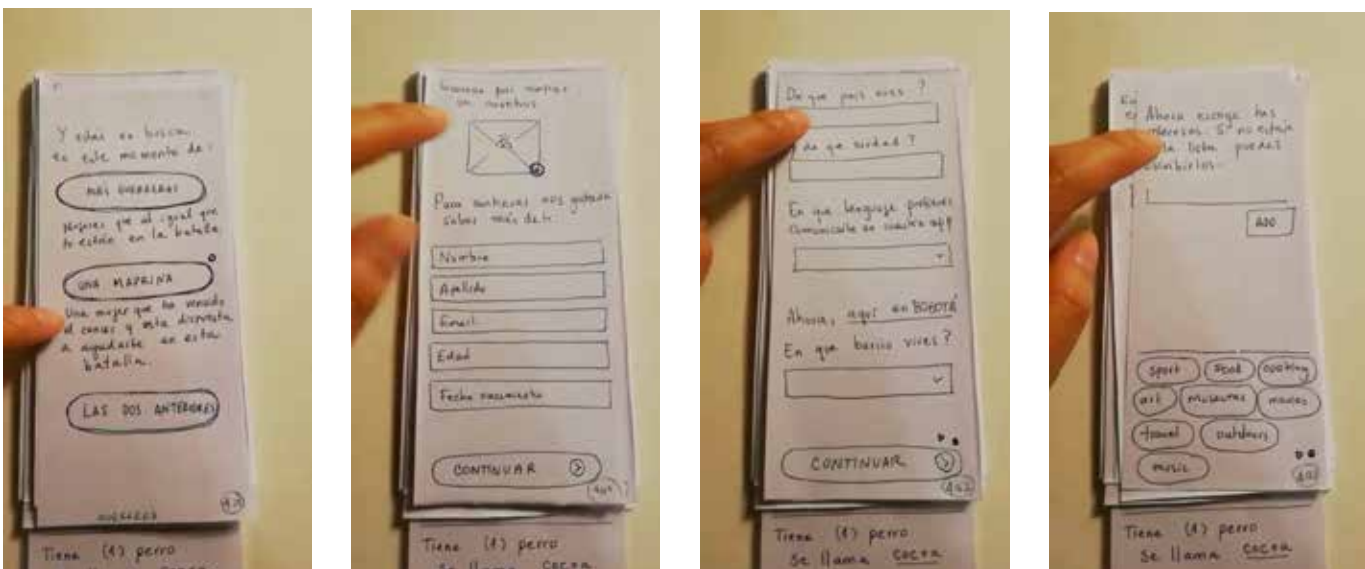 Y estas en busca
en este momento de:
MAS GUERRERAS
Mujeres que al igual que
tu estan en la batalla
UNA MADRINA
Una mujer que ha vencido
el cancer y esta dispuesta
a ayudarte en esta
batalla.
LAS DOS ANTERIORES
Tiene (1) perro
Para conocerte nos gustaria
saber más de ti
Nombre
Apellido
Email
Edad
Fecha nacimiento
CONTINUAR
Tiene (1) perro
Se llama COCOA
De que pais eres ?
de que ciudad ?
En que lenguaje prefieres
comunicarte en nuestra app
Ahora, aquí en BOGOTÁ
En que barrio vives ?
CONTINUAR
Tiene (1) perro
Se llama COCOA
Ahora escoge tus
intereses. Si no estan
la lista puedes
escribirlos.
ADD
sport
food
cooking
art
museums
movies
travel
outdoors
music
Tiene (1) perro
Se llama COCOA